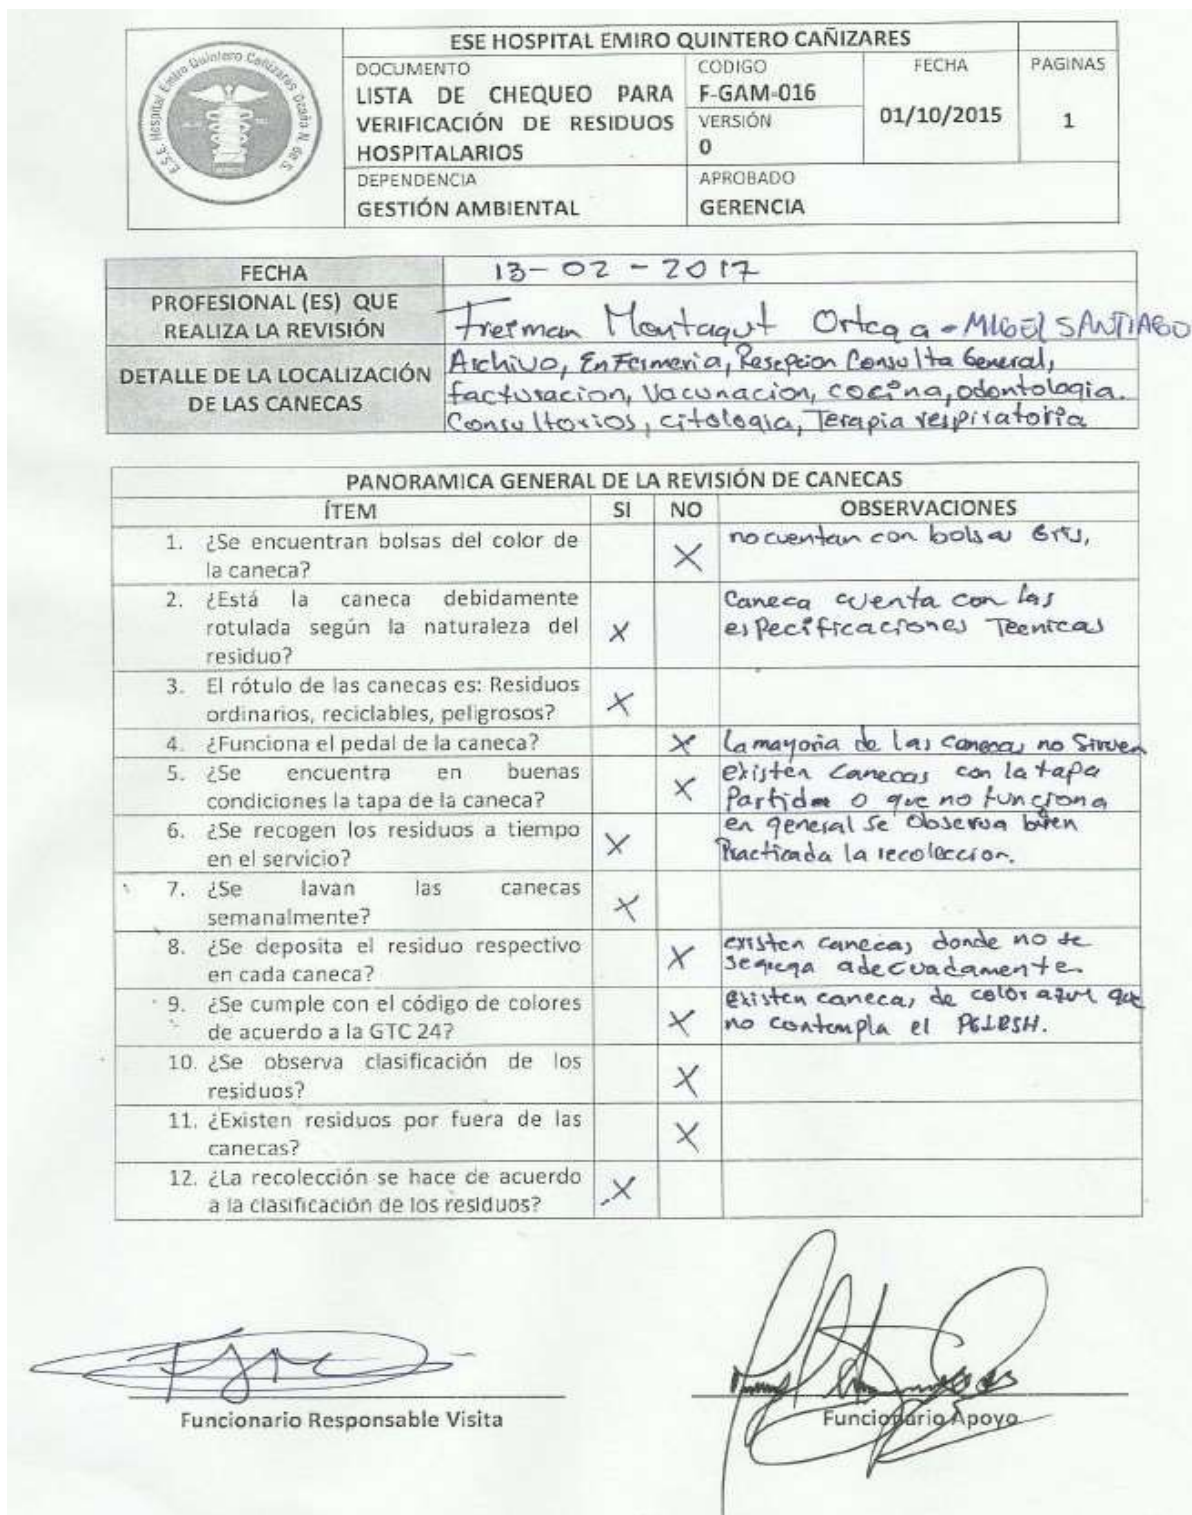 ESE HOSPITAL EMIRO QUINTERO CAÑIZARES
E.S.E. Hospital Emiro Quintero Cañizares Ocaña N. de S.
DOCUMENTO
LISTA DE CHEQUEO PARA
VERIFICACIÓN DE RESIDUOS
HOSPITALARIOS
CODIGO
F-GAM-016
VERSIÓN
0
FECHA
01/10/2015
PAGINAS
1
DEPENDENCIA
GESTIÓN AMBIENTAL
APROBADO
GERENCIA
FECHA
13-02-2017
PROFESIONAL (ES) QUE
REALIZA LA REVISIÓN
Freiman Montagut Ortega - MIGUEL SANTIAGO
DETALLE DE LA LOCALIZACIÓN
DE LAS CANECAS
Archivo, Enfermeria, Resepcion Consulta General,
facturacion, Vacunacion, cocina, odontologia.
Consultorios, citologia, Terapia respiratoria
PANORAMICA GENERAL DE LA REVISIÓN DE CANECAS
ÍTEM SI NO OBSERVACIONES
1. ¿Se encuentran bolsas del color de
la caneca?
X
no cuentan con bolsa Gris,
2. ¿Está la caneca debidamente
rotulada según la naturaleza del
residuo?
X
Caneca cuenta con las
especificaciones Tecnicas
3. El rótulo de las canecas es: Residuos
ordinarios, reciclables, peligrosos?
X
4. ¿Funciona el pedal de la caneca?
X
La mayoria de las canecas no Sirven
5. ¿Se encuentra en buenas
condiciones la tapa de la caneca?
X
existen Canecas con la tapa
Partida o que no funciona
6. ¿Se recogen los residuos a tiempo
en el servicio?
X
en general se Observa bien
Practicada la recoleccion.
7. ¿Se lavan las canecas
semanalmente?
X
8. ¿Se deposita el residuo respectivo
en cada caneca?
X
existen canecas donde no se
segrega adecuadamente
9. ¿Se cumple con el código de colores
de acuerdo a la GTC 24?
X
existen canecas de color azul que
no contempla el PGIRSH.
10. ¿Se observa clasificación de los
residuos?
X
11. ¿Existen residuos por fuera de las
canecas?
X
12. ¿La recolección se hace de acuerdo
a la clasificación de los residuos?
X
Funcionario Responsable Visita
Funcionario Apoyo